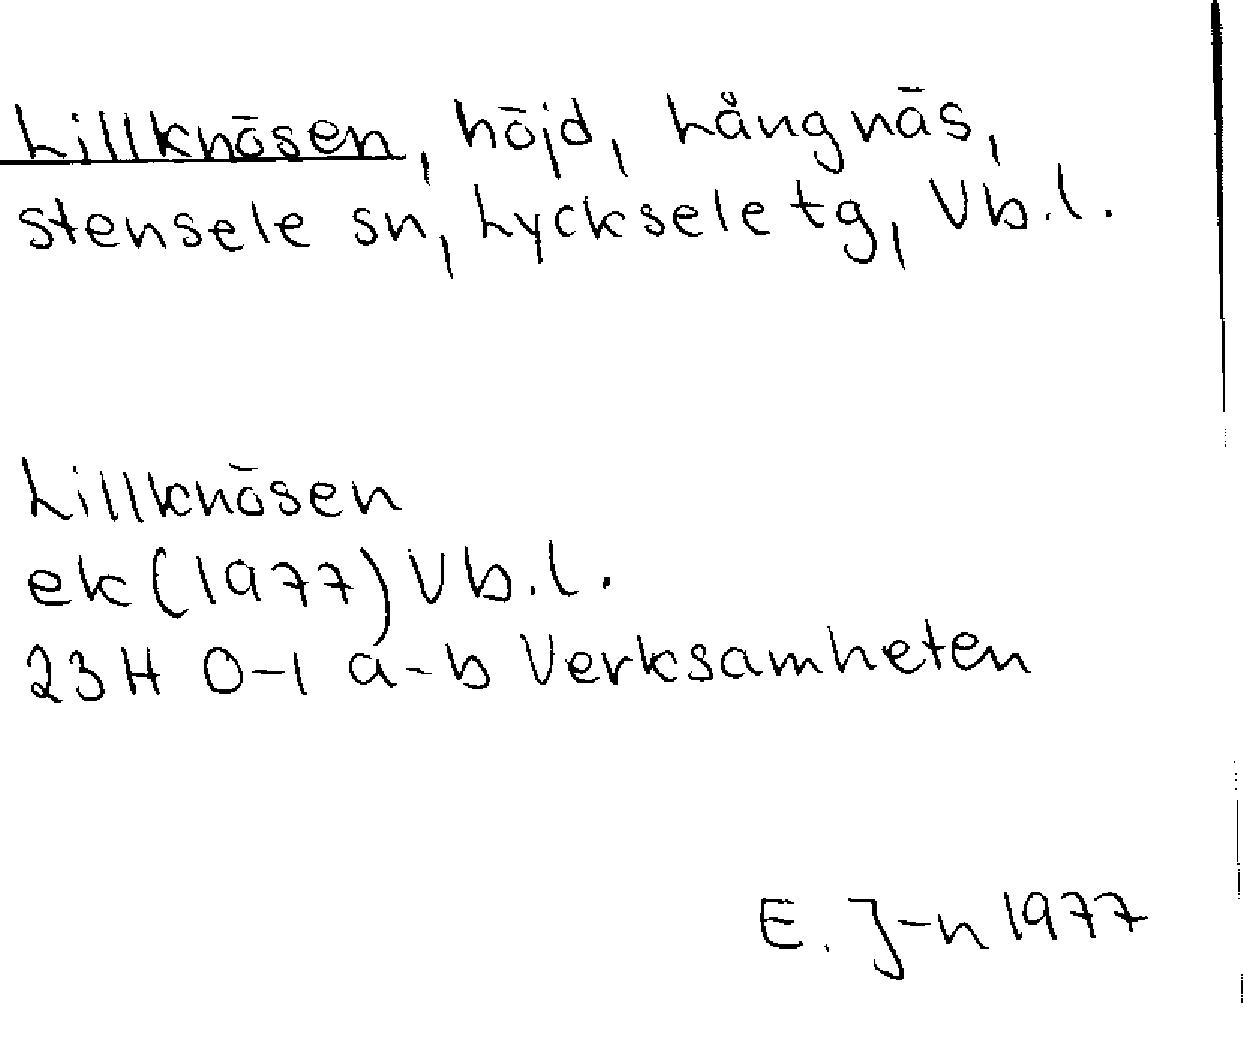 Lillknösen, höjd, Långnäs,
Stensele sn, Lycksele tg, Vb.l.
Lillknösen
ek (1977) Vb.l.
23H 0-1 a-b Verksamheten
E. J-n 1977